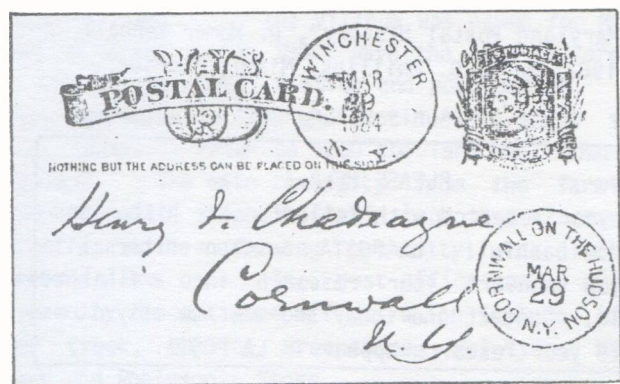 POSTAL CARD.
WINCHESTER
MAR
29
1884
N.Y.
NOTHING BUT THE ADDRESS CAN BE PLACED ON THIS SIDE.
Henry F. Chadeayne
Cornwall
N.Y.
CORNWALL ON THE HUDSON
MAR
29
N.Y.